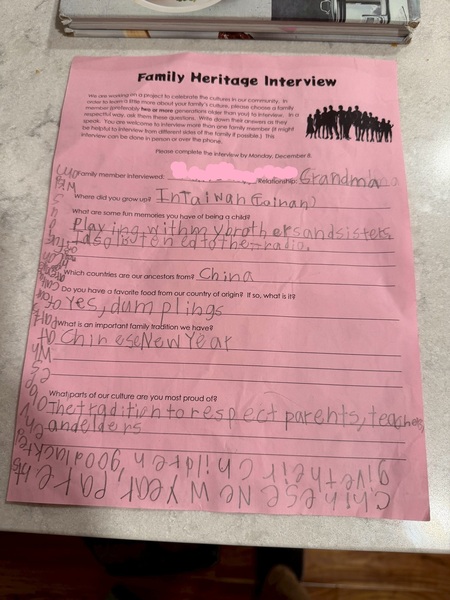 Family Heritage Interview
We are working on a project to celebrate the cultures in our community. In
order to learn a little more about your family's culture, please choose a family
member (preferably two or more generations older than you) to interview. In a
respectful way, ask them these questions. Write down their answers as they
speak. You are welcome to interview more than one family member (it might
be helpful to interview from different sides of the family if possible.) This
interview can be done in person or over the phone.
Please complete the interview by Monday, December 8.
Family member interviewed: Relationship: Grandma
Where did you grow up? In taiwan (Tainan)
What are some fun memories you have of being a child?
Playing with my brothers and sisters.
I also listoned to the radio.
Which countries are our ancestors from? China
Do you have a favorite food from our country of origin? If so, what is it?
Yes, dumplings
What is an important family tradition we have?
Chinese New Year
What parts of our culture are you most proud of?
The tradition to respect parents, teachers,
and elders
chinese New year, parents
give their children good luck